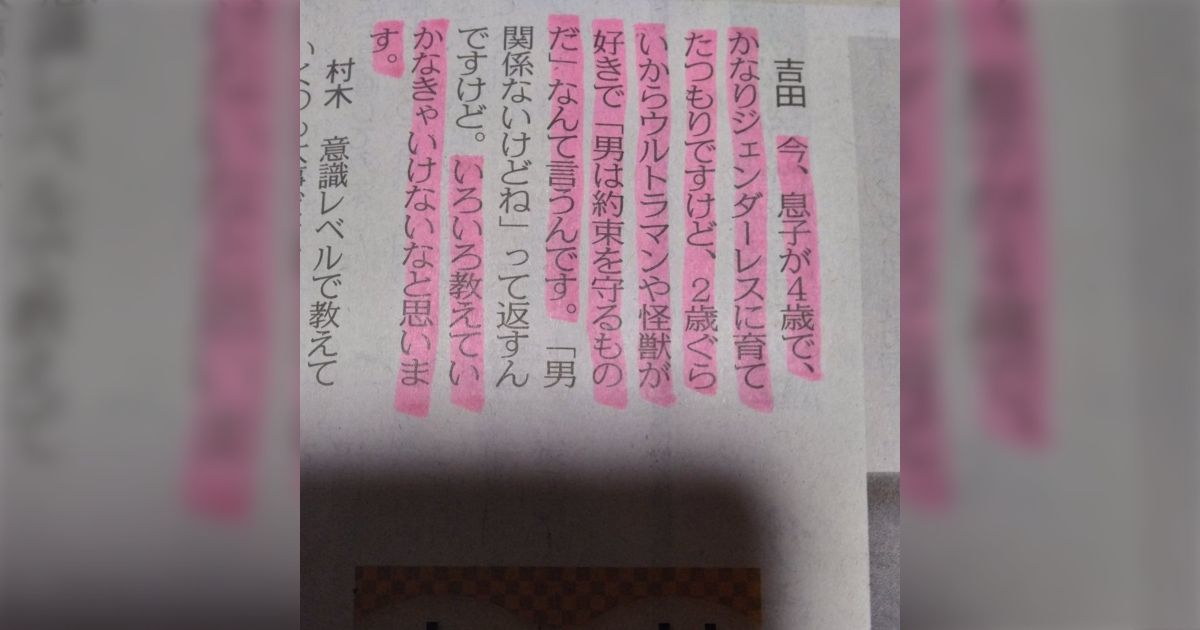 吉田　今、息子が４歳で、
かなりジェンダーレスに育て
たつもりですけど、２歳ぐら
いからウルトラマンや怪獣が
好きで「男は約束を守るもの
だ」なんて言うんです。「男
関係ないけどね」って返すん
ですけど。いろいろ教えてい
かなきゃいけないなと思いま
す。
村木　意識レベルで教えて